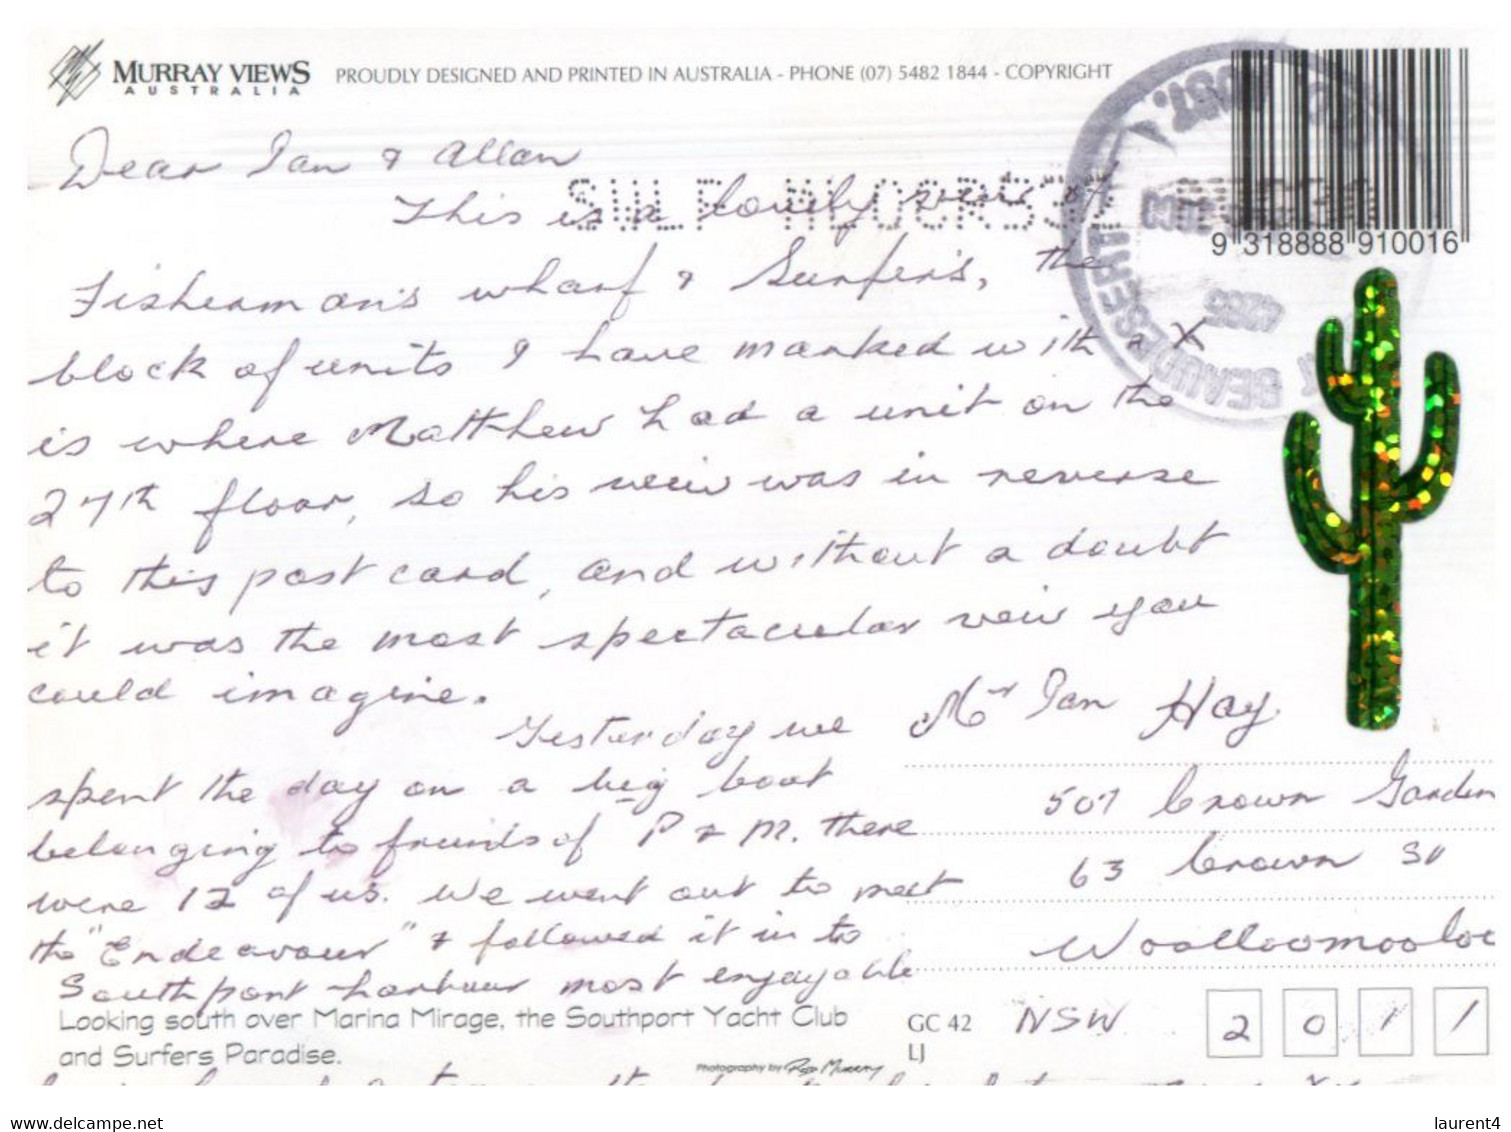 MURRAY VIEWS
AUSTRALIA
PROUDLY DESIGNED AND PRINTED IN AUSTRALIA - PHONE (07) 5482 1844 - COPYRIGHT
9 318888 910016
BEAUDESERT
Dear Ian & Allan
This is a lovely view of
Fisherman's wharf & Surfer's, the
block of units I have marked with a X
is where Matthew had a unit on the
27th floor, so his veiw was in reverse
to this post card, and without a doubt
it was the most spectacular veiw you
could imagine.
Yesterday we
spent the day on a big boat
belonging to friends of P & M. there
were 12 of us. We went out to meet
the "Endeavour" & followed it in to
Southport harbour most enjoyable
Mr Ian Hay
507 Crown Garden
63 Crown St
Woolloomooloo
NSW 2011
Looking south over Marina Mirage, the Southport Yacht Club
and Surfers Paradise.
GC 42
LJ
Photography by Pep Murray
www.delcampe.net
laurent4